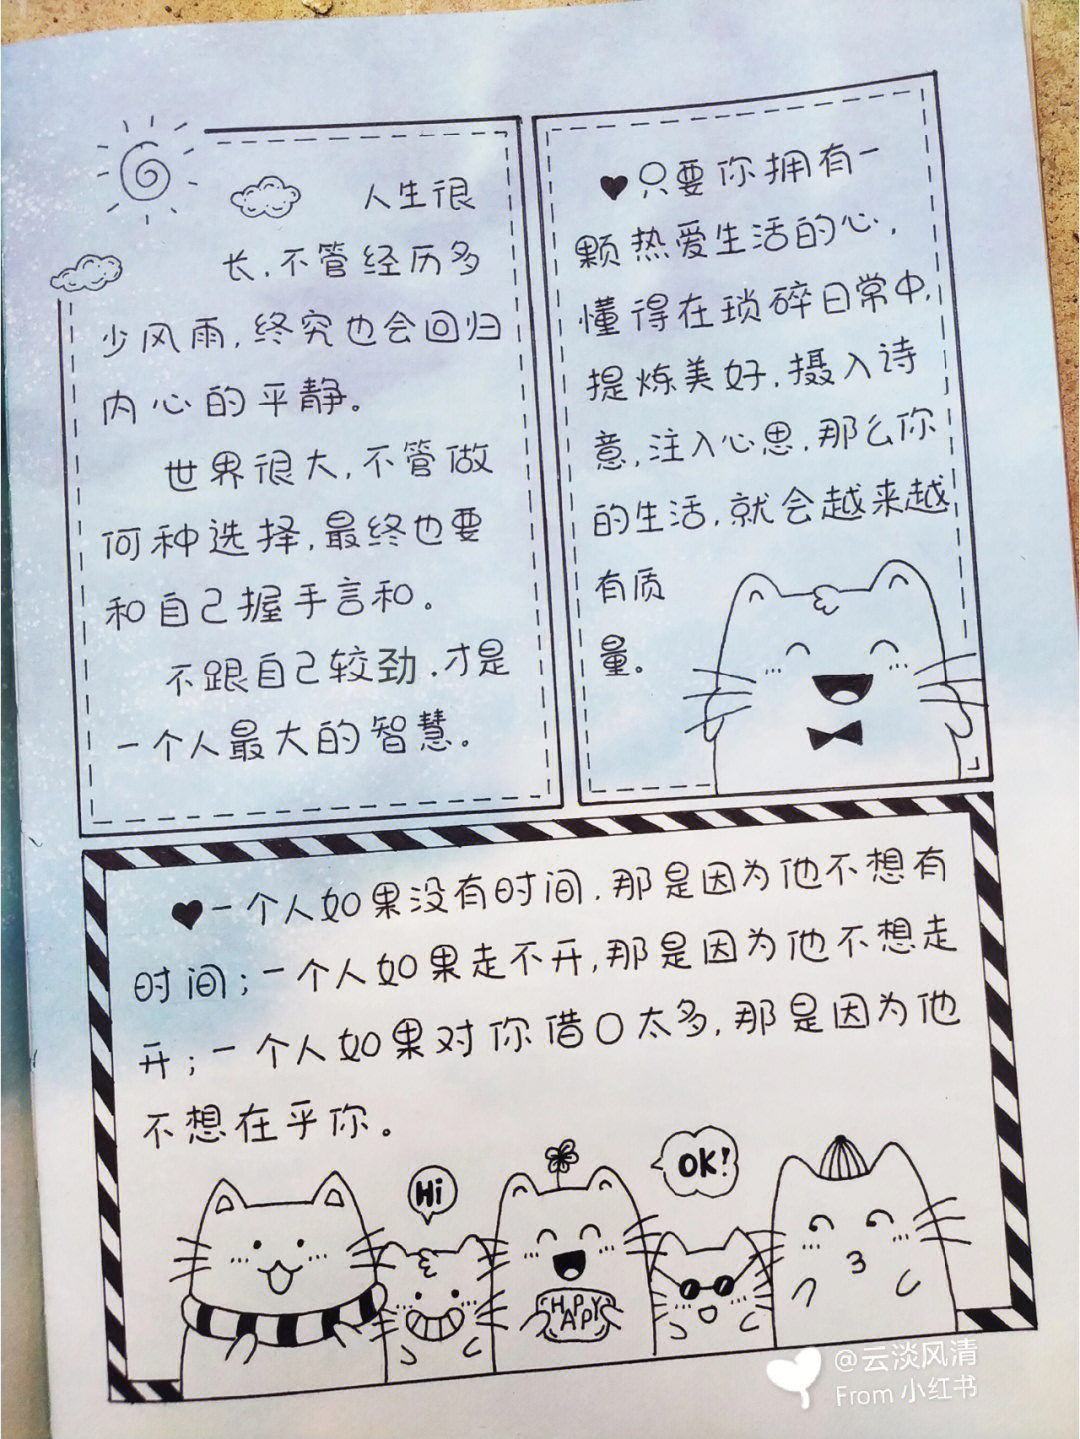 人生很
长,不管经历多
少风雨,终究也会回归
内心的平静。
世界很大,不管做
何种选择,最终也要
和自己握手言和。
不跟自己较劲,才是
一个人最大的智慧。
♥只要你拥有一
颗热爱生活的心,
懂得在琐碎日常中,
提炼美好,摄入诗
意,注入心思,那么你
的生活,就会越来越
有质
量。
♥一个人如果没有时间,那是因为他不想有
时间;一个人如果走不开,那是因为他不想走
开;一个人如果对你借口太多,那是因为他
不想在乎你。
Hi
OK!
HAPPY
@云淡风清
From 小红书